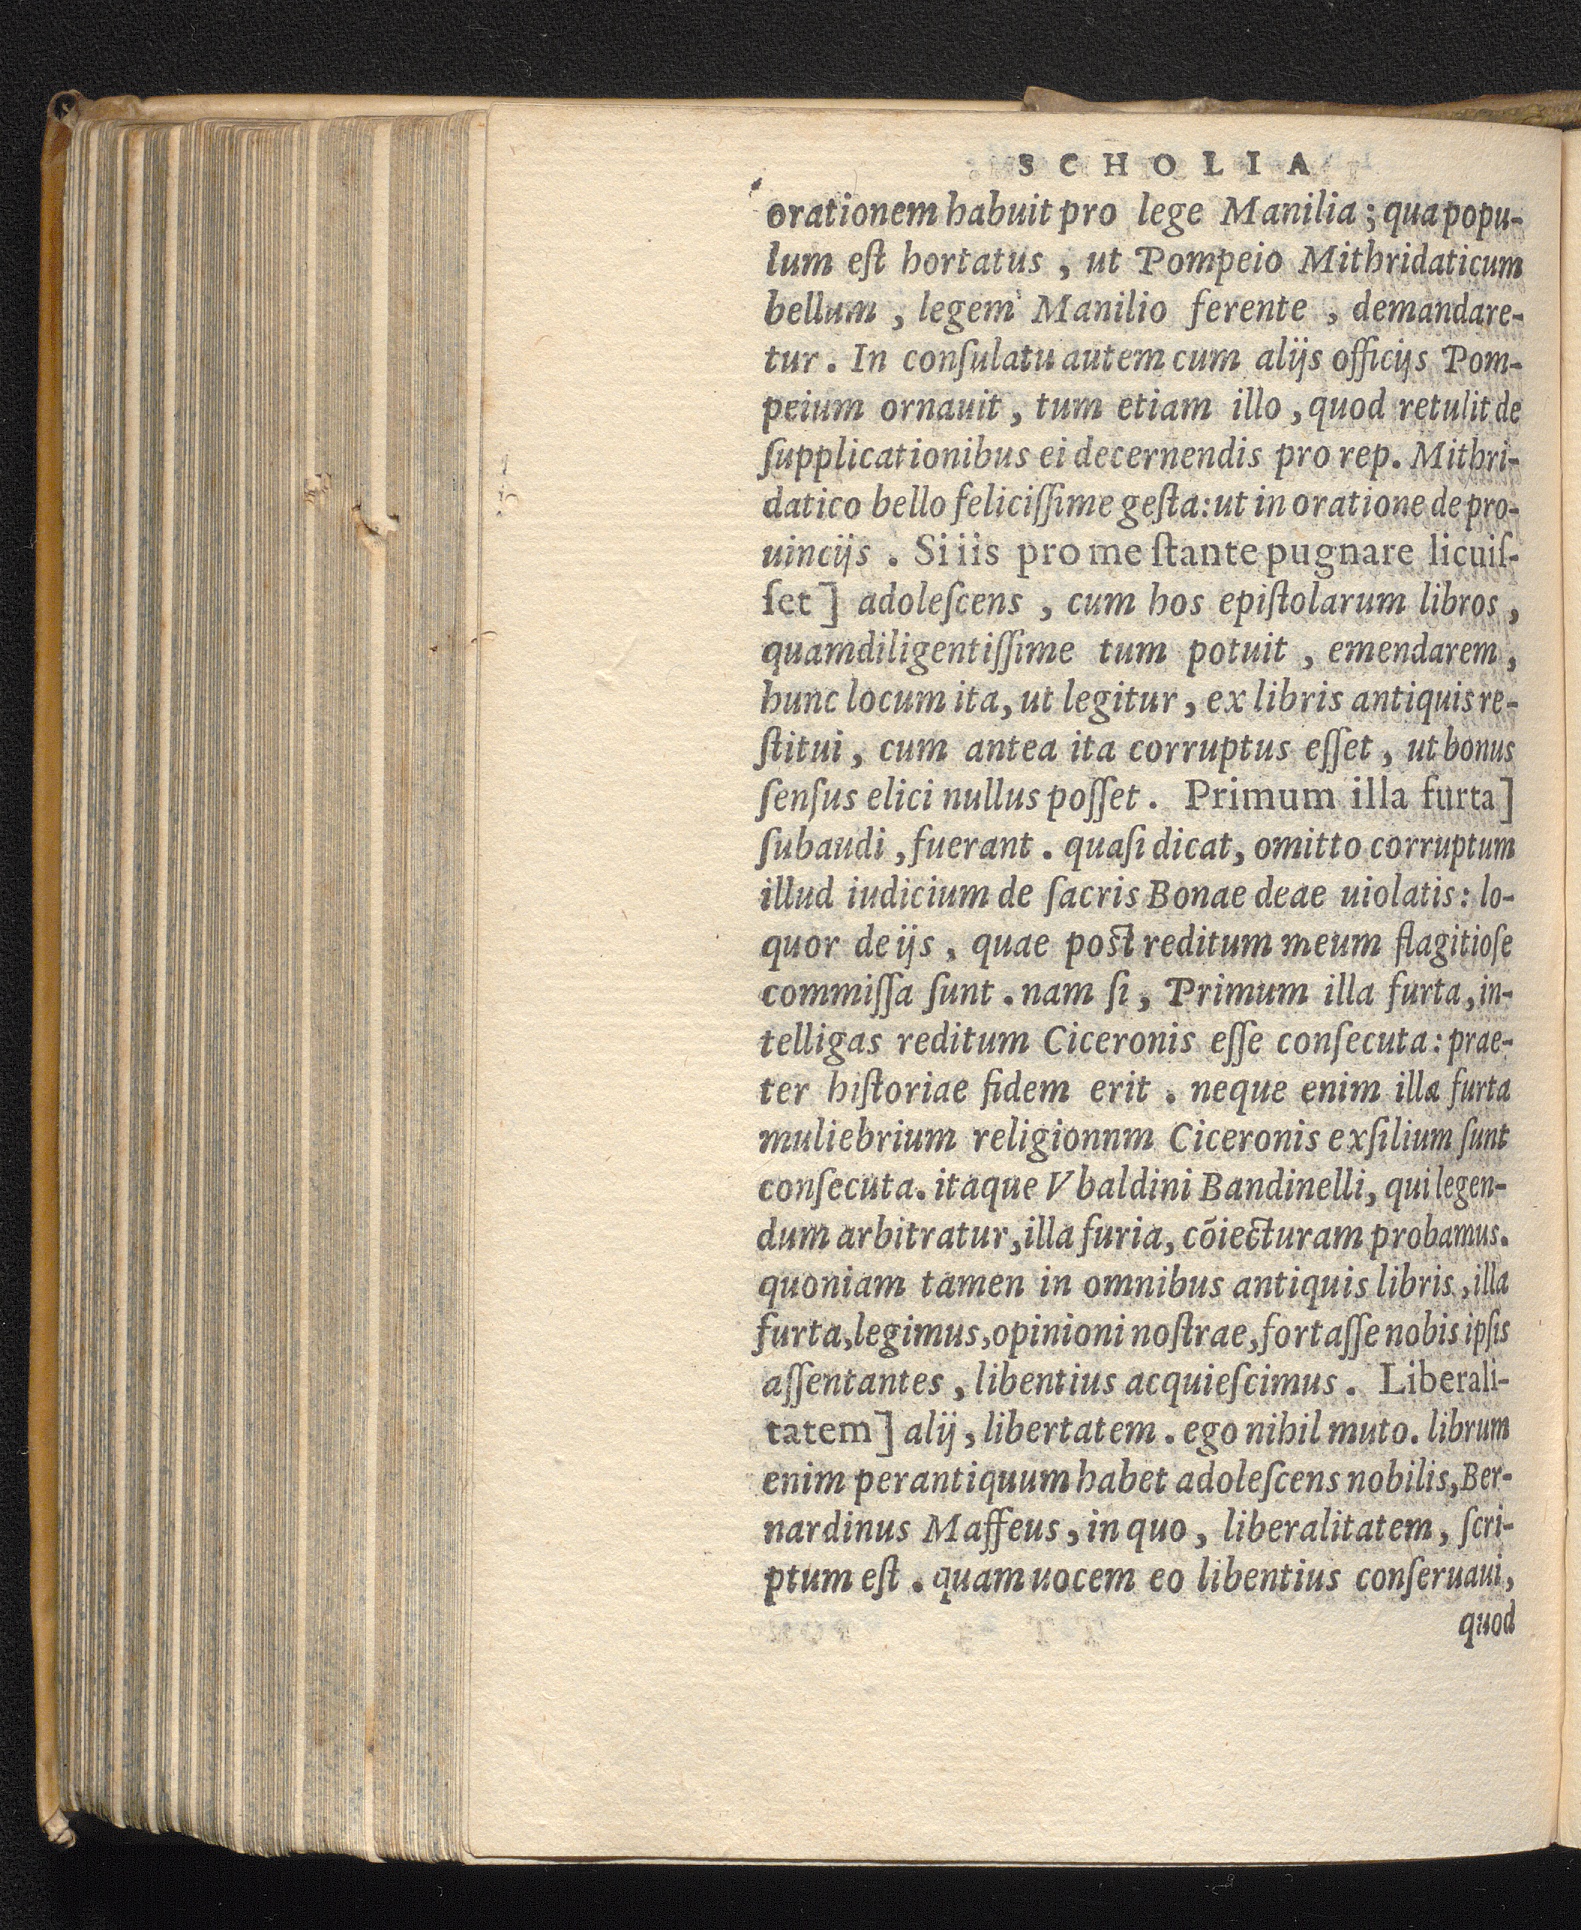 SCHOLIA
orationem habuit pro lege Manilia; qua popu-
lum eſt hortatus, ut Pompeio Mithridaticum
bellum, legem Manilio ferente, demandare-
tur. In conſulatu autem cum alijs officijs Pom-
peium ornauit, tum etiam illo, quod retulit de
ſupplicationibus ei decernendis pro rep. Mithri-
datico bello feliciſſime geſta: ut in oratione de pro-
uincijs. Si iis pro me ſtante pugnare licuiſ-
ſet] adoleſcens, cum hos epiſtolarum libros,
quamdiligentiſſime tum potuit, emendarem,
hunc locum ita, ut legitur, ex libris antiquis re-
ſtitui, cum antea ita corruptus eſſet, ut bonus
ſenſus elici nullus poſſet. Primum illa furta]
ſubaudi, fuerant. quaſi dicat, omitto corruptum
illud iudicium de ſacris Bonae deae uiolatis: lo-
quor de ijs, quae post reditum meum flagitioſe
commiſſa ſunt. nam ſi, Primum illa furta, in-
telligas reditum Ciceronis eſſe conſecuta: prae-
ter hiſtoriae fidem erit. neque enim illa furta
muliebrium religionnm Ciceronis exſilium ſunt
conſecuta. itaque Vbaldini Bandinelli, qui legen-
dum arbitratur, illa furia, cõiecturam probamus.
quoniam tamen in omnibus antiquis libris, illa
furta, legimus, opinioni noſtrae, fortaſſe nobis ipſis
aſſentantes, libentius acquieſcimus. Liberali-
tatem] alij, libertatem. ego nihil muto. librum
enim perantiquum habet adoleſcens nobilis, Ber-
nardinus Maffeus, in quo, liberalitatem, ſcri-
ptum eſt. quam uocem eo libentius conſeruaui,
quod